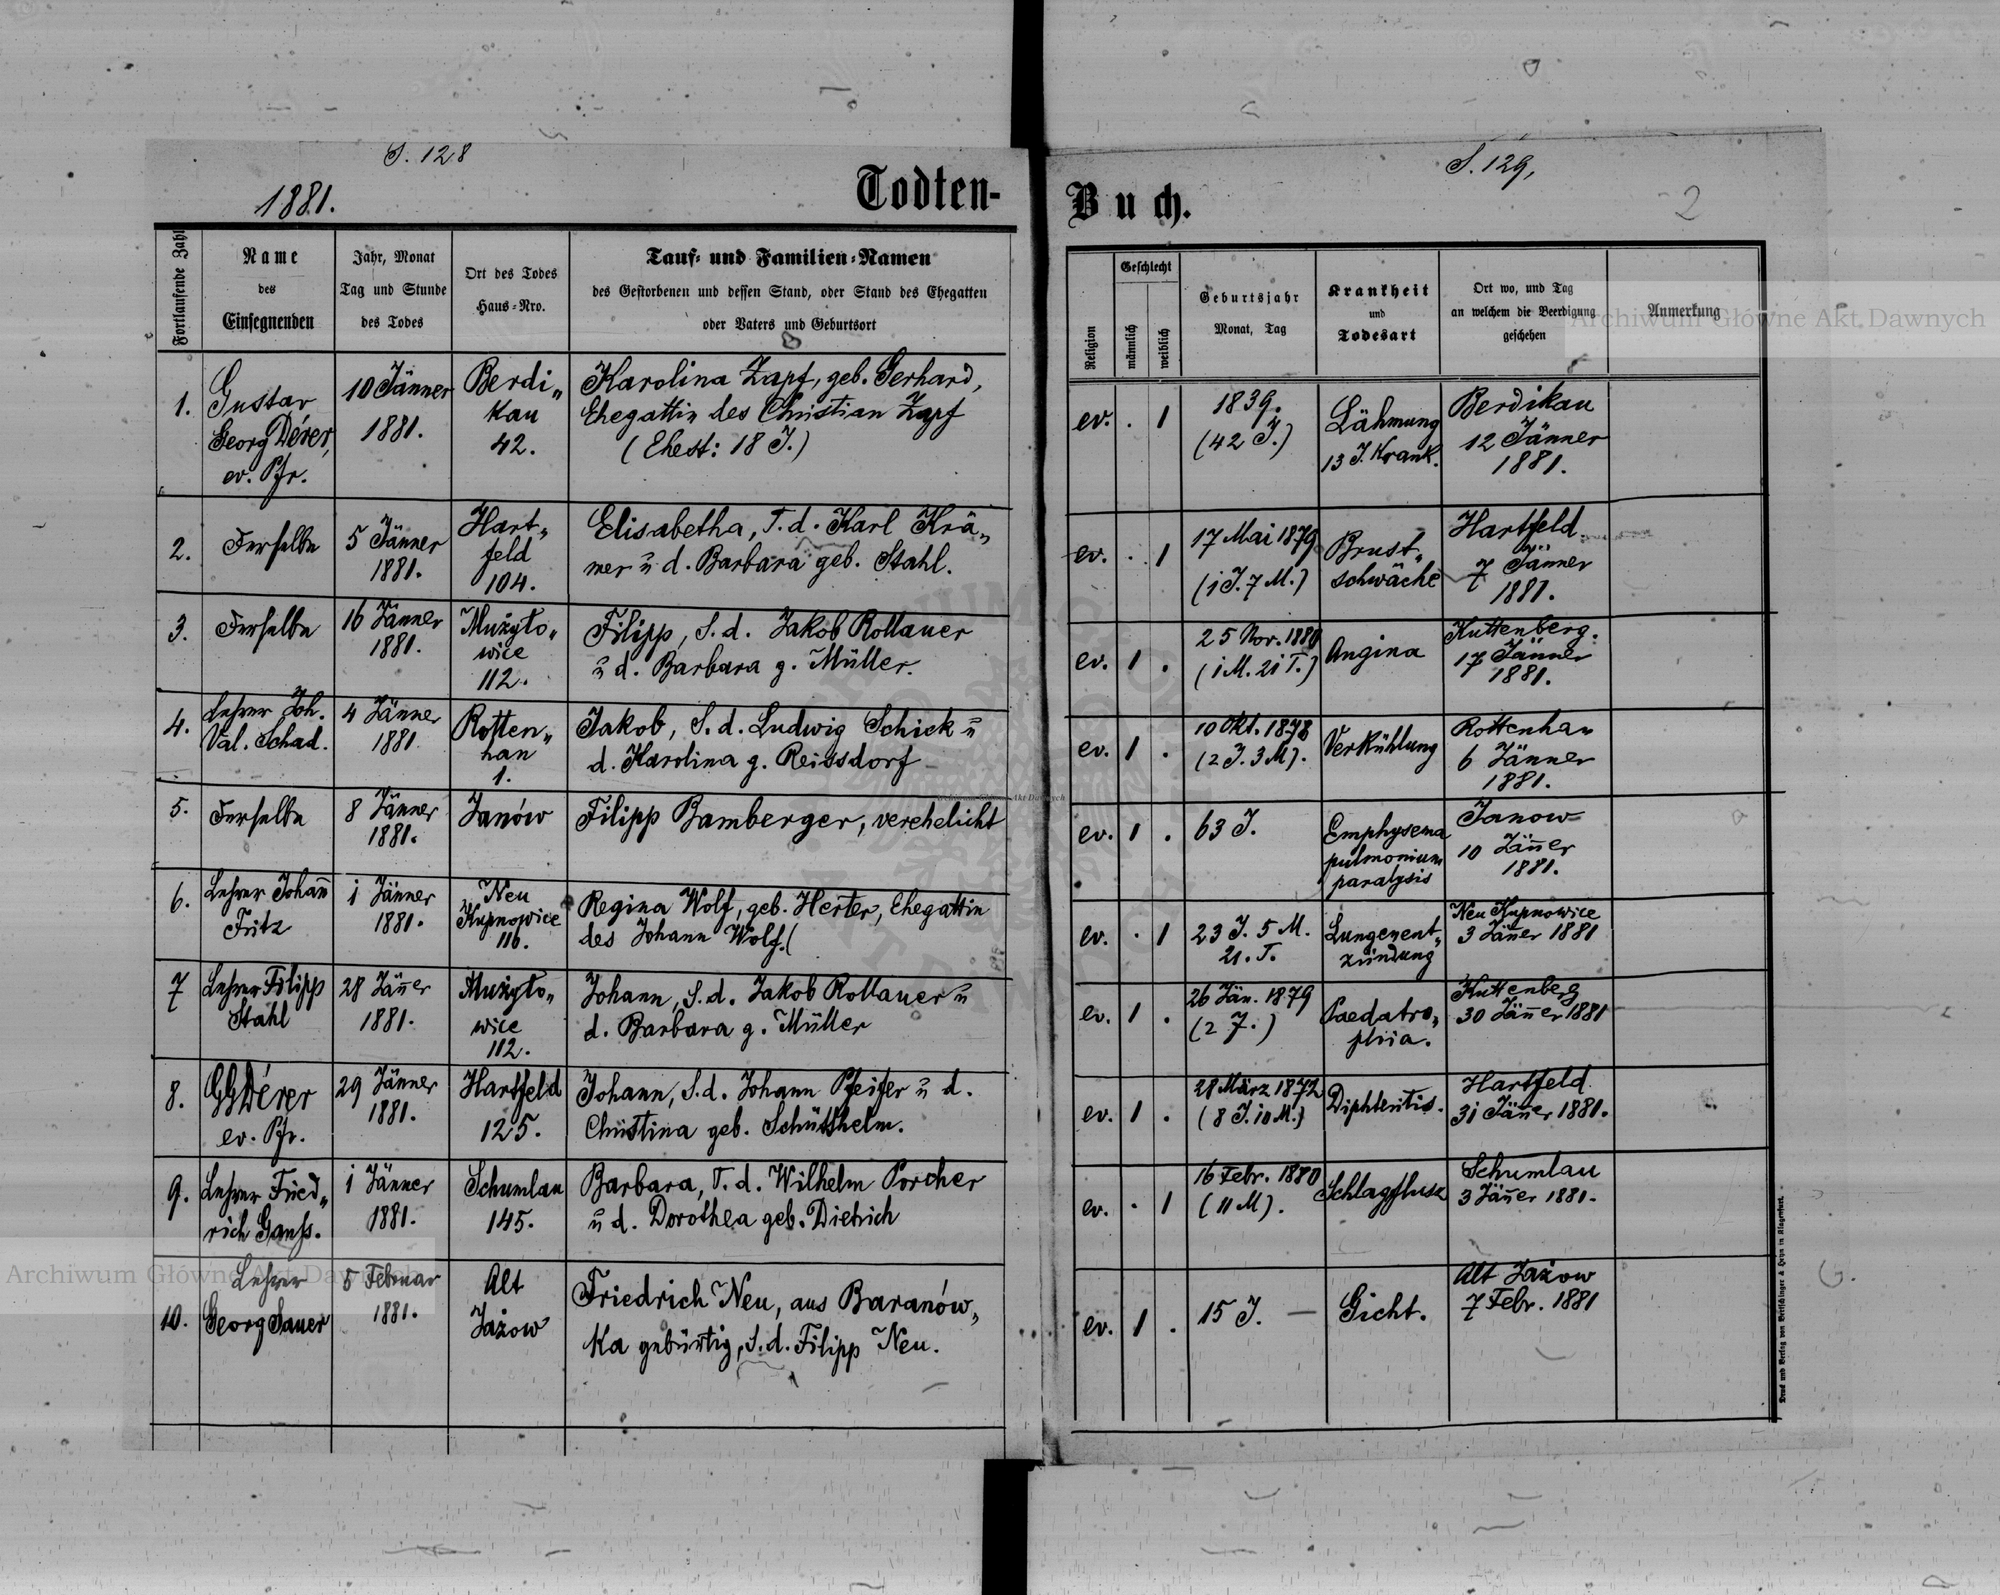 S. 128
1881.
Todten-
Fortlaufende Zahl
Name
des
Einsegnenden
Jahr, Monat
Tag und Stunde
des Todes
Ort des Todes
Haus-Nro.
Tauf- und Familien-Namen
des Gestorbenen und dessen Stand, oder Stand des Ehegatten
oder Vaters und Geburtsort
1.
Gustav
Georg Dérer,
ev. Pfr.
10 Jänner
1881.
Berdi„
kau
42.
Karolina Zapf, geb. Gerhard,
Ehegattin des Christian Zapf
(Ehest: 18 J.)
2.
Derselbe
5 Jänner
1881.
Hart„
feld
104.
Elisabetha, T. d. Karl Krä„
mer u d. Barbara geb. Stahl.
3.
Derselbe
16 Jänner
1881.
Mużyło„
wice
112.
Filipp, S. d. Jakob Rollauer
u d. Barbara g. Müller.
4.
Lehrer Joh.
Val. Schad.
4 Jänner
1881.
Rotten„
han
1.
Jakob, S. d. Ludwig Schick u
d. Karolina g. Reissdorf
5.
Derselbe
8 Jänner
1881.
Janów
Filipp Bamberger, verehelicht
6.
Lehrer Johañ
Fritz
1 Jänner
1881.
Neu
Kupnowice
116.
Regina Wolf, geb. Herter, Ehegattin
des Johann Wolf.(
7
Lehrer Filipp
Stahl
28 Jäñer
1881.
Mużyło„
wice
112.
Johann, S. d. Jakob Rollauer u
d. Barbara g. Müller
8.
GGDérer
ev. Pfr.
29 Jänner
1881.
Hartfeld
125.
Johann, S. d. Johann Pfeifer u d.
Christina geb. Schütthelm.
9.
Lehrer Fried„
rich Ganß.
1 Jänner
1881.
Schumlau
145.
Barbara, T. d. Wilhelm Porcher
u d. Dorothea geb. Dietrich
10.
Lehrer
Georg Sauer
5 Februar
1881.
Alt
Jażow
Friedrich Neu, aus Baranów„
ka gebürtig, S. d. Filipp Neu.
S. 129,
2
Buch.
Religion
Geschlecht
männlich
weiblich
Geburtsjahr
Monat, Tag
Krankheit
und
Todesart
Ort wo, und Tag
an welchem die Beerdigung
geschehen
Anmerkung
ev. . 1
1839.
(42 J.)
Lähmung
13 J. Krank.
Berdikau
12 Jänner
1881.
ev. . 1
17 Mai 1879
(1 J. 7 M.)
Brust„
schwäche
Hartfeld.
7 Jänner
1881.
ev. 1 .
25 Nov. 1880
(1 M. 21 T.)
Angina
Kuttenberg.
17 Jänner
1881.
ev. 1 .
10 Okt. 1878
(2 J. 3 M).
Verkühlung
Rottenhan
6 Jänner
1881.
ev. 1 .
63 J.
Emphysema
pulmonium
paralysis
Janow
10 Jäñer
1881.
ev. . 1
23 J. 5 M.
21. T.
Lungenent„
zündung
Neu Kupnowice
3 Jäñer 1881
ev. 1 .
26 Jän. 1879
(2 J.)
Paedatro„
phia.
Kuttenberg
30 Jäñer 1881
ev. 1 .
28 März 1872
(8 J. 10 M.)
Diphteritis.
Hartfeld.
31 Jäñer 1881.
ev. . 1
16 Febr. 1880
(11 M).
Schlagflusz
Schumlau
3 Jäñer 1881.
ev. 1 .
15 J. —
Gicht.
Alt Jażow
7 Febr. 1881
Druck und Verlag von Bertschinger & Heyn in Klagenfurt.
Archiwum Główne Akt Dawnych
Archiwum Główne Akt Dawnych
Archiwum Główne Akt Dawnych